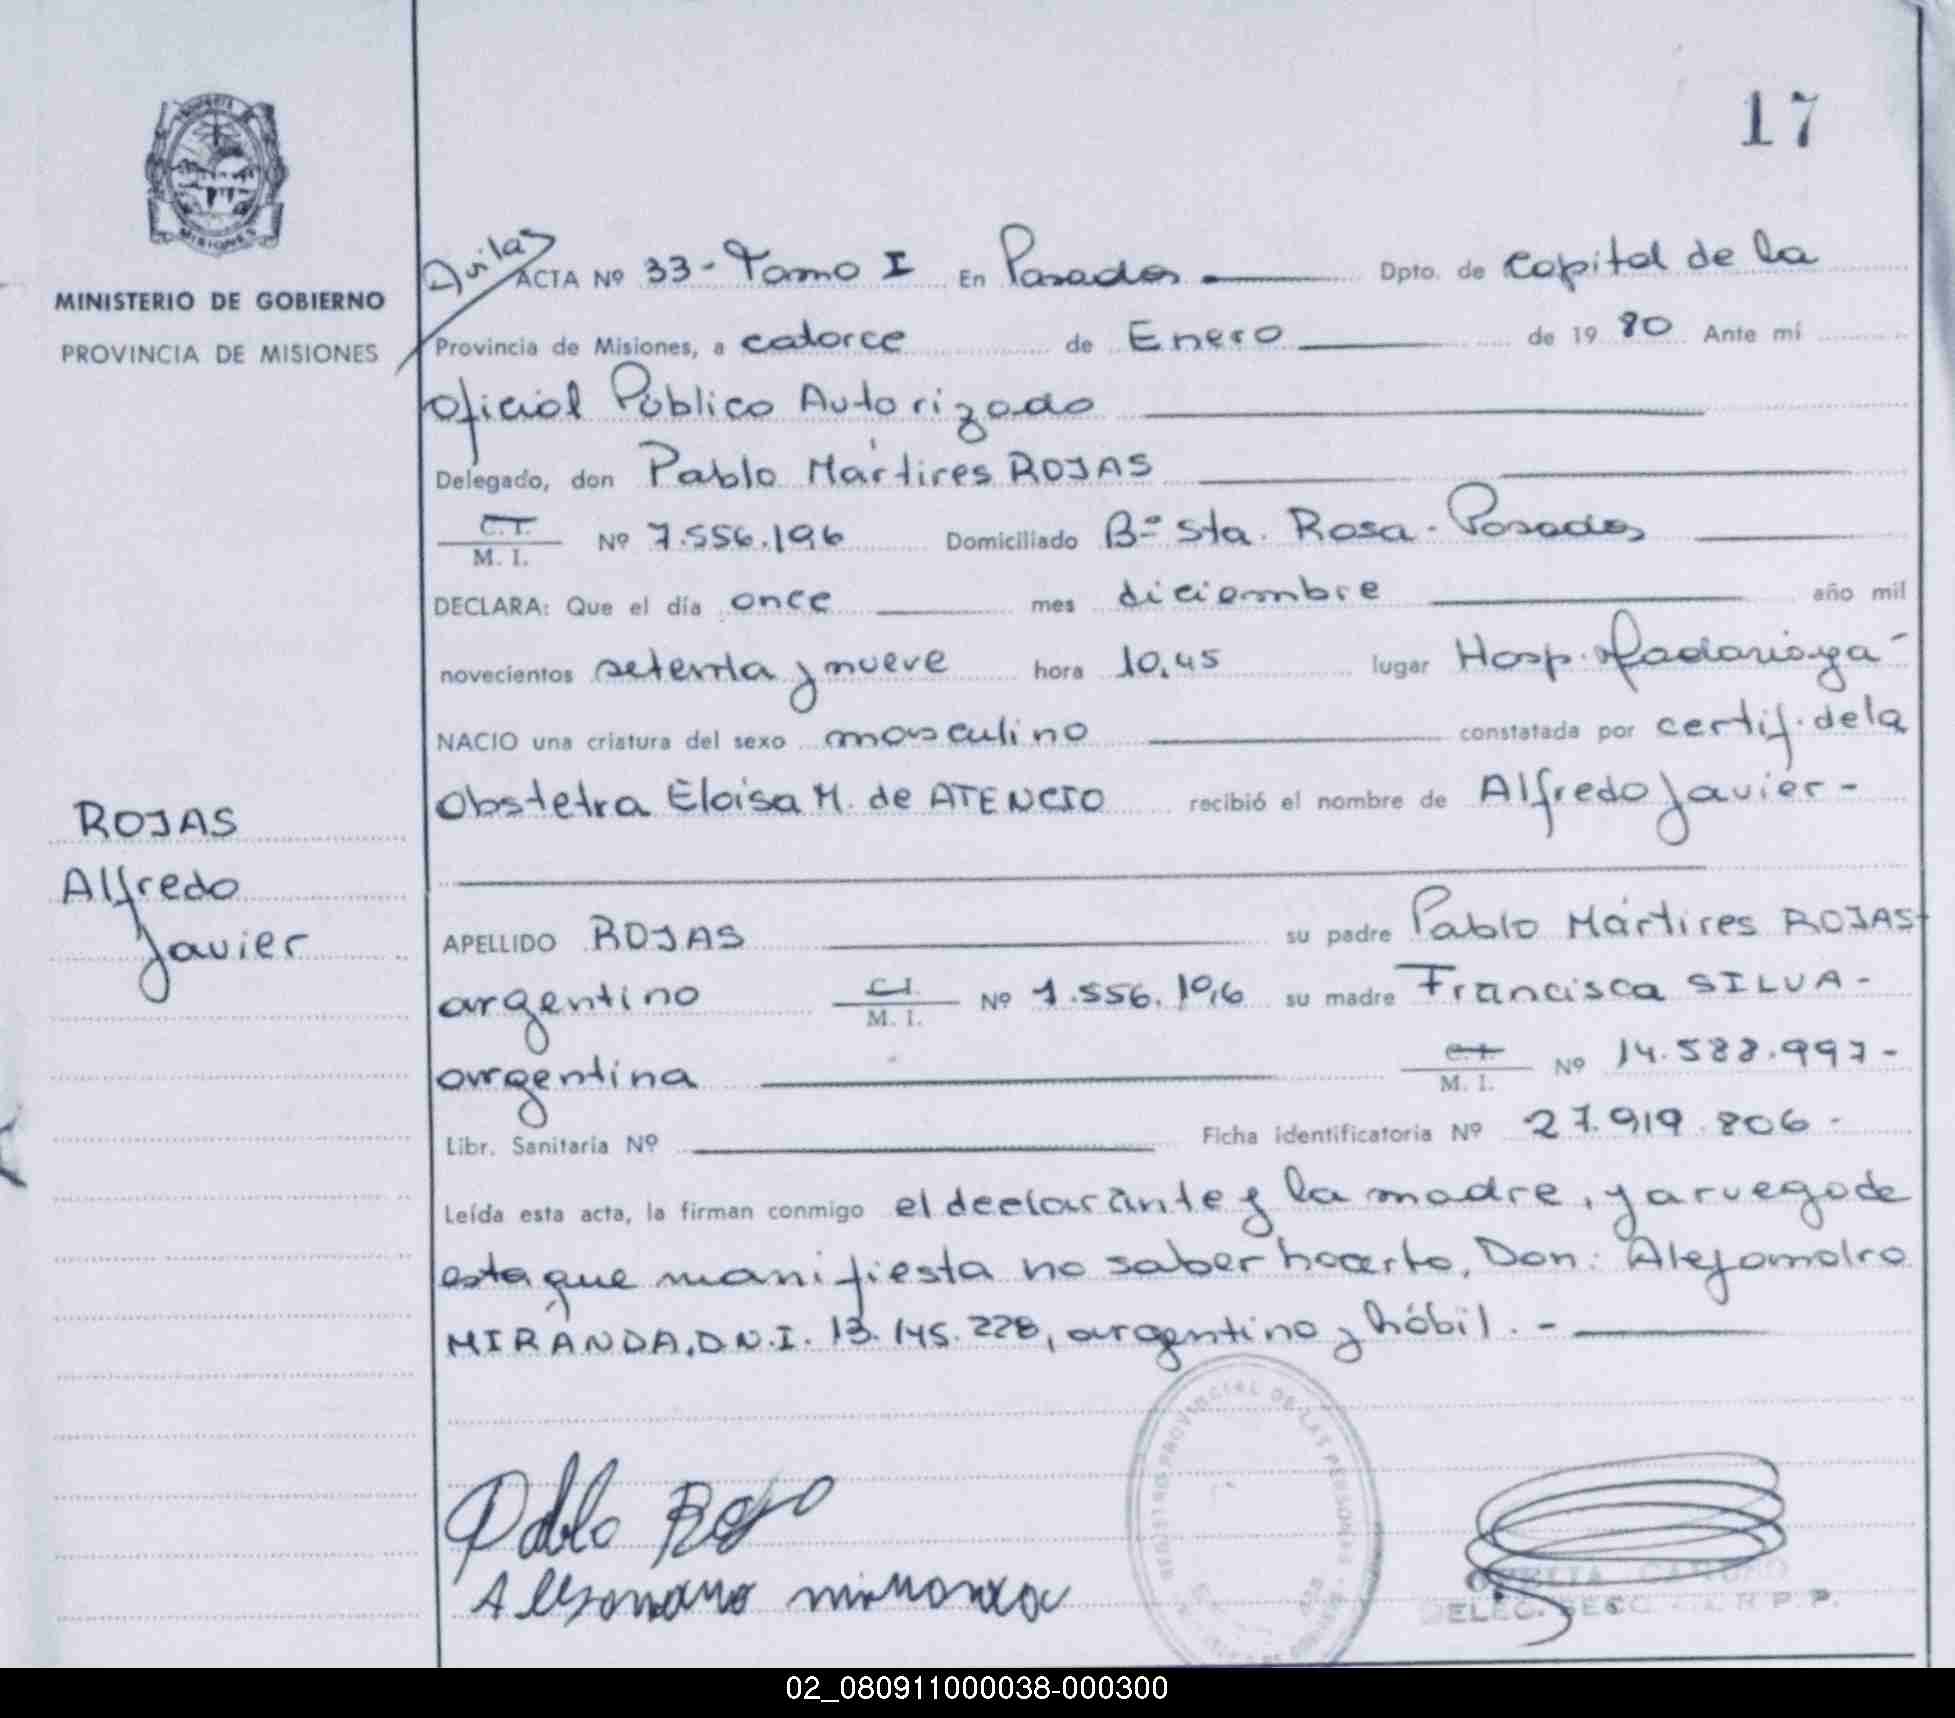 17
MISIONES
MINISTERIO DE GOBIERNO
PROVINCIA DE MISIONES
Avila
ACTA Nº 33 - Tomo I En Posadas Dpto. de Capital de la
Provincia de Misiones, a catorce de Enero de 19 80 Ante mí
Oficial Público Autorizado
Delegado, don Pablo Mártires ROJAS
C.I. M. I. Nº 7.556.196 Domiciliado Bº Sta. Rosa - Posadas
DECLARA: Que el día once mes diciembre año mil
novecientos setenta y nueve hora 10,45 lugar Hosp. Madariaga -
NACIO una criatura del sexo masculino constatada por certif. de la
Obstetra Eloisa M. de ATENCIO recibió el nombre de Alfredo Javier -
ROJAS
Alfredo
Javier
APELLIDO ROJAS su padre Pablo Mártires ROJAS -
argentino C.I. M. I. Nº 7.556.196 su madre Francisca SILVA -
argentina C.I. M. I. Nº 14.588.997 -
Libr. Sanitaria Nº Ficha identificatoria Nº 27.919.806 -
Leída esta acta, la firman conmigo el declarante y la madre, y a ruego de
esta que manifiesta no saber hacerlo, Don: Alejandro
MIRANDA, D.N.I. 13.145.228, argentino y hábil. -
Pablo Rojo
Alejandro miranda
REGISTRO PROVINCIAL DE LAS PERSONAS
DELEG. SECC. R. P. P.
02_080911000038-000300